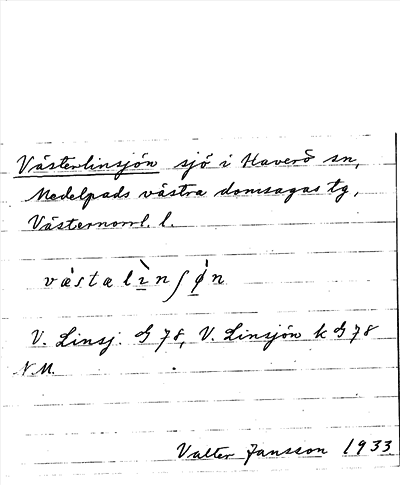 Västerlinsjön sjö i Haverö sn,
Medelpads västra domsagas tg,
Västernorrl. l.
vǻstalìnʃø̀n
V. Linsj. G 78, V. Linsjön k G 78
N.M.
Valter Jansson 1933